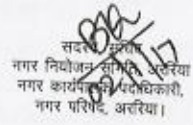 सदस्य सचिव
नगर नियोजन समिति, अररिया
नगर कार्यपालक पदाधिकारी,
नगर परिषद, अररिया।